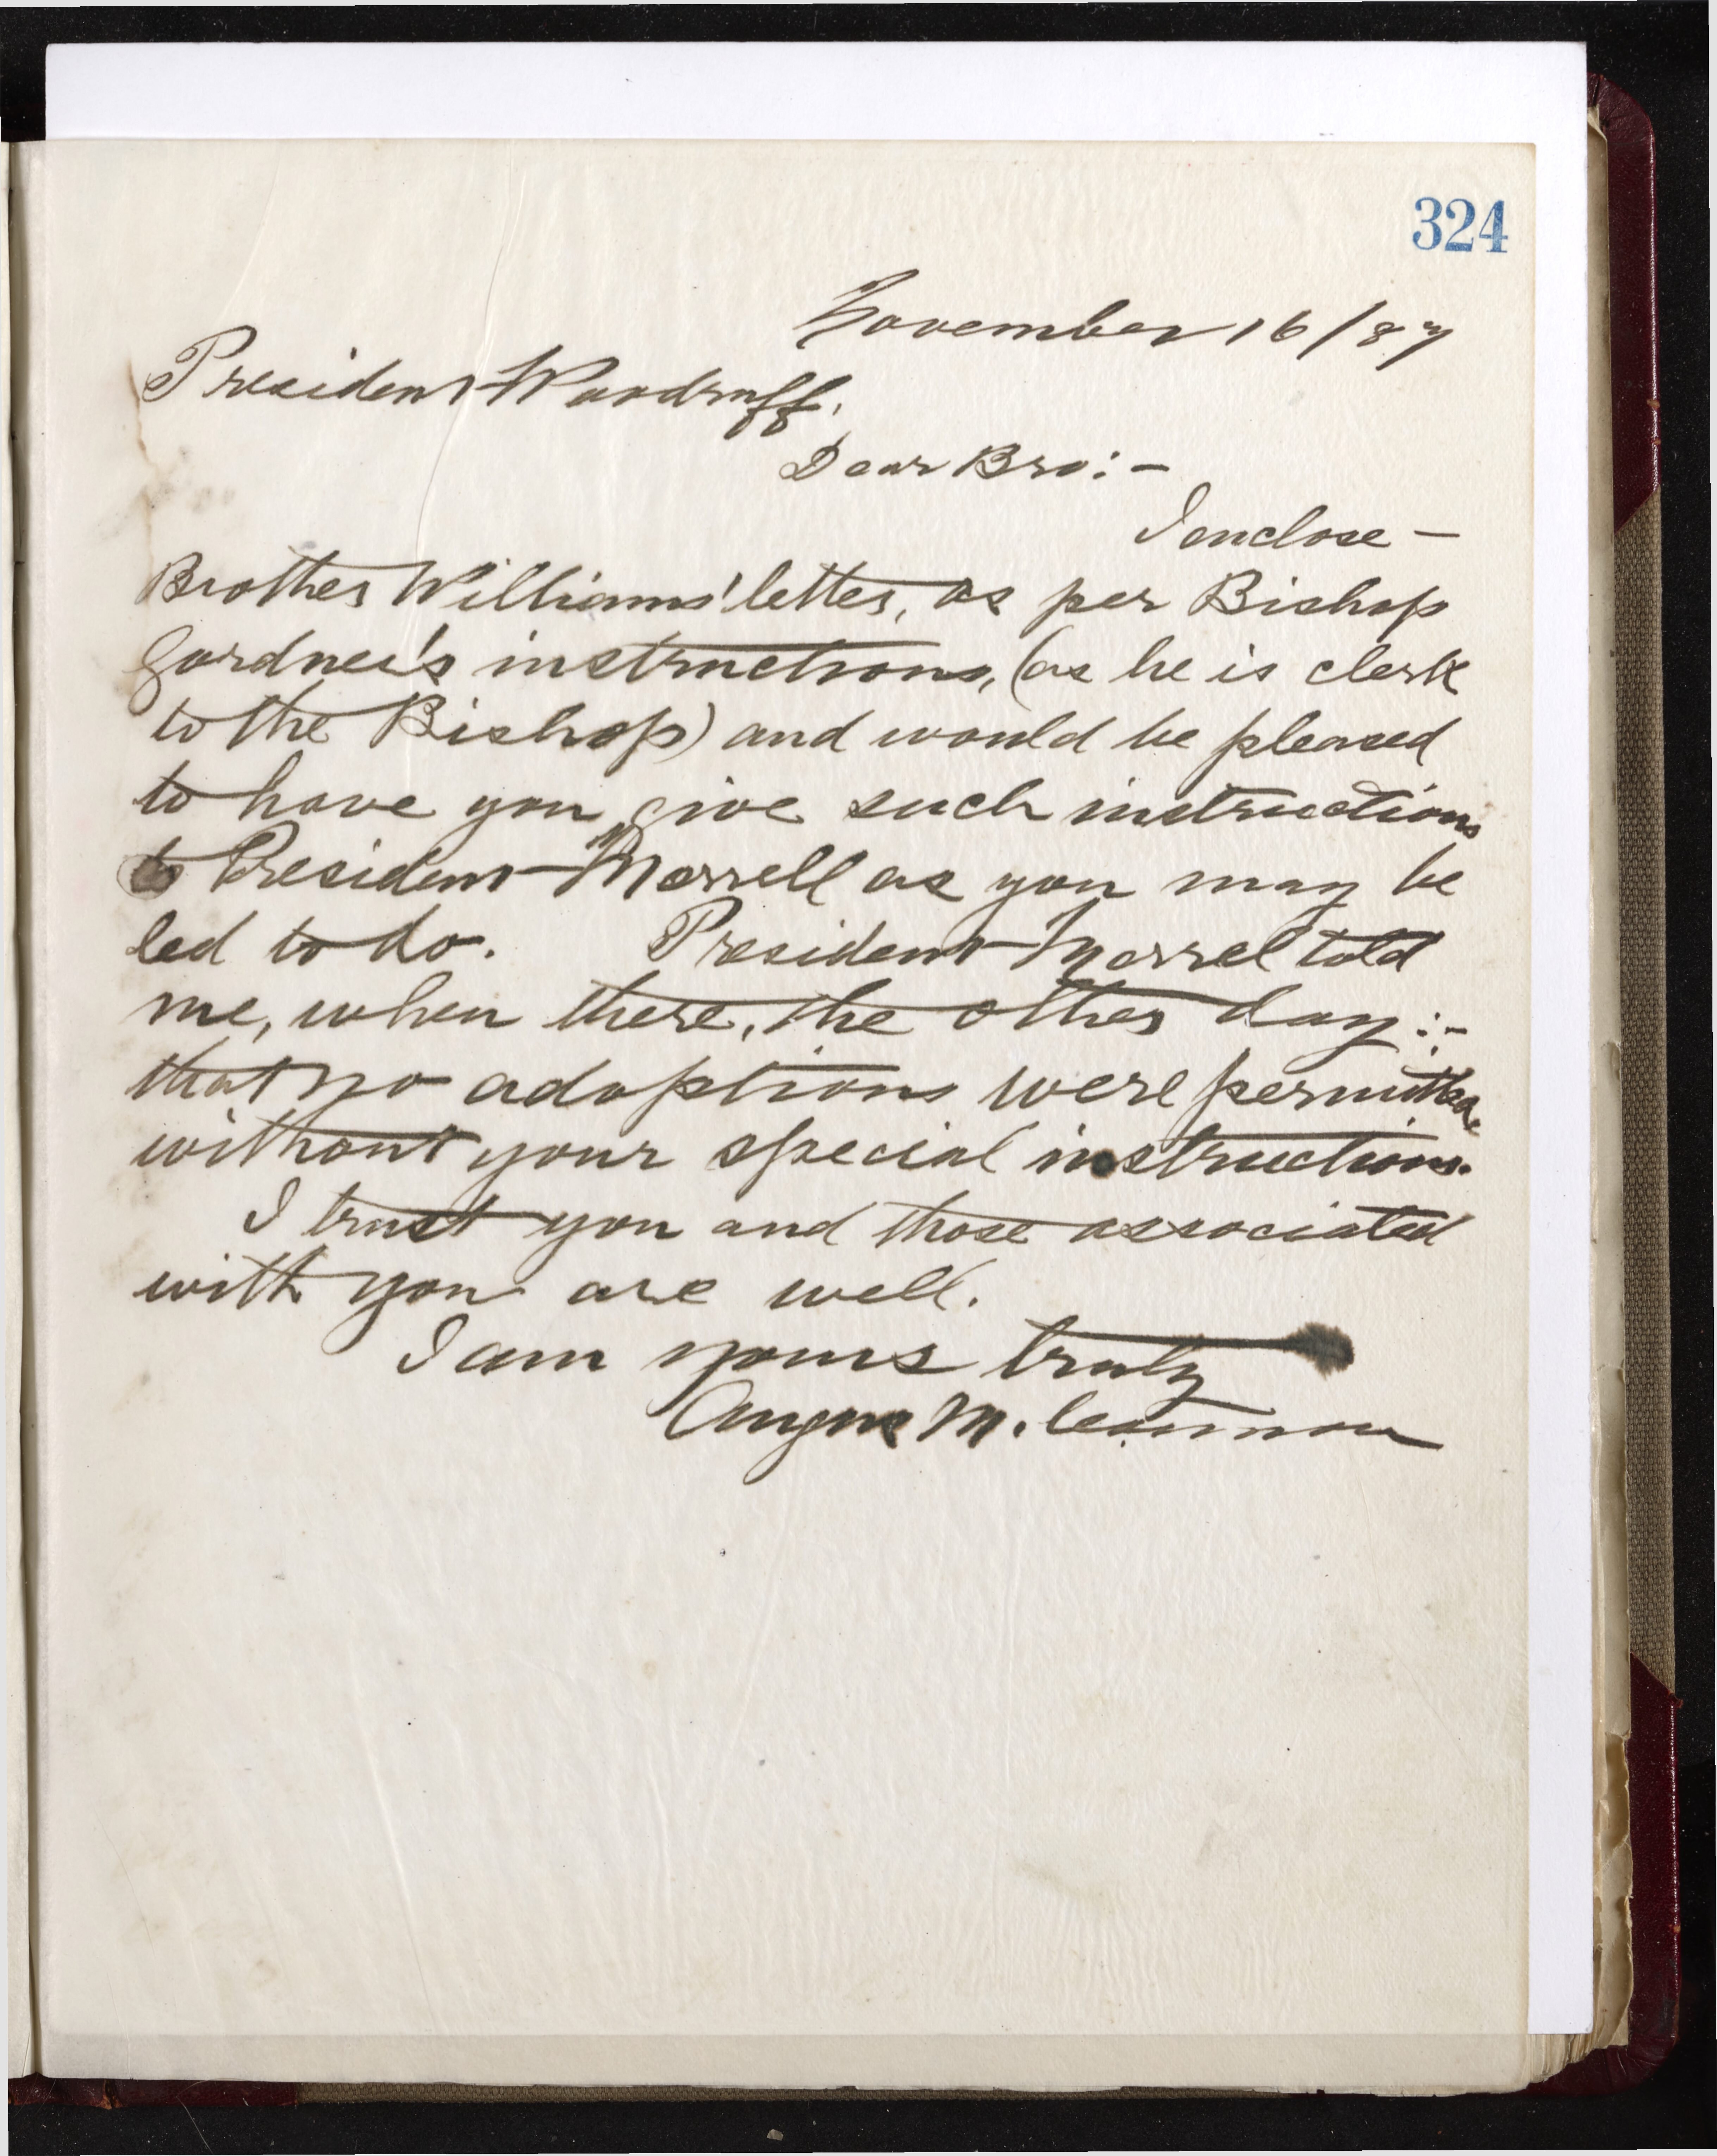 324
November 16/87
President Woodruff.
Dear Bro:—
I enclose —
Brother Williams' letter, as per Bishop
Gardner's instructions, (as he is clerk
to the Bishop) and would be pleased
to have you give such instructions
to President Morrell as you may be
led to do. President Morrel told
me, when there, the other day:-
that no adoptions were permitted,
without your special instructions.
I trust you and those associated
with you are well.
I am yours truly
Angus M. Cannon